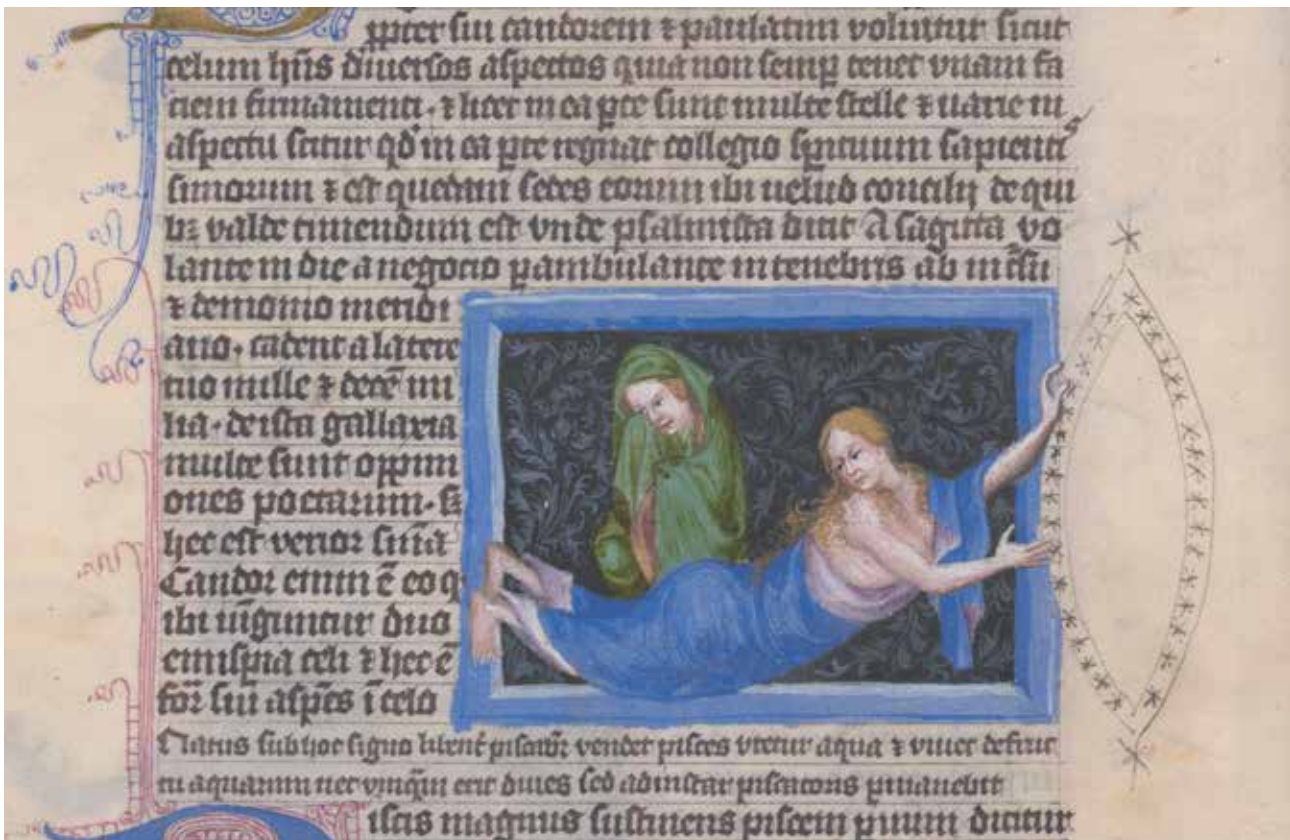 ppter sui candorem ⁊ paulatim voluitur sicut
celum hñs diuersos aspectos quia non semp tenet vnam fa
ciem firmamenti. ⁊ licet in ea pte sunt multe stelle ⁊ uarie in
aspectu scitur qd in ea pte regnat collegio spirituum sapientis
simorum ⁊ est quedam sedes eorum ibi uelud concilij de qui
bꝫ valde timendum est vnde psalmista dicit A sagitta vo
lante in die a negocio pambulante in tenebris ab incsu
⁊ demonio meridi
ano. cadent a latere
tuo mille ⁊ decē mi
lia. de ista gallaxia
multe sunt oppini
ones poetarum. sꝫ
hec est verior snīa
Candor enim ē eo q
ibi iūguntur duo
emispia celi ⁊ hec ē
for sui aspēs ī celo
Natus sub hoc signo libent piscabr vendet pisces vtetur aqua ⁊ viuet de fruc
tu aquarum nec vnqm erit diues sed ad instar piscatoris
iscis magnus sustinens piscem dicitur